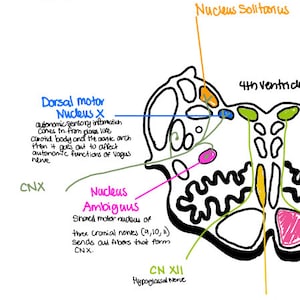 Nucleus Solitarius
4th Ventricl
Dorsal motor
Nucleus X
autonomic sensory information
comes in from places like
carotid body and the aortic arch
then it goes out to affect
autonomic functions of vagus
nerve
CNX
Nucleus
Ambiguus
Shared motor nucleus of
three cranial nerves (9,10,11)
Sends out fibers that form
CNX.
CN XII
Hypoglossal Nerve